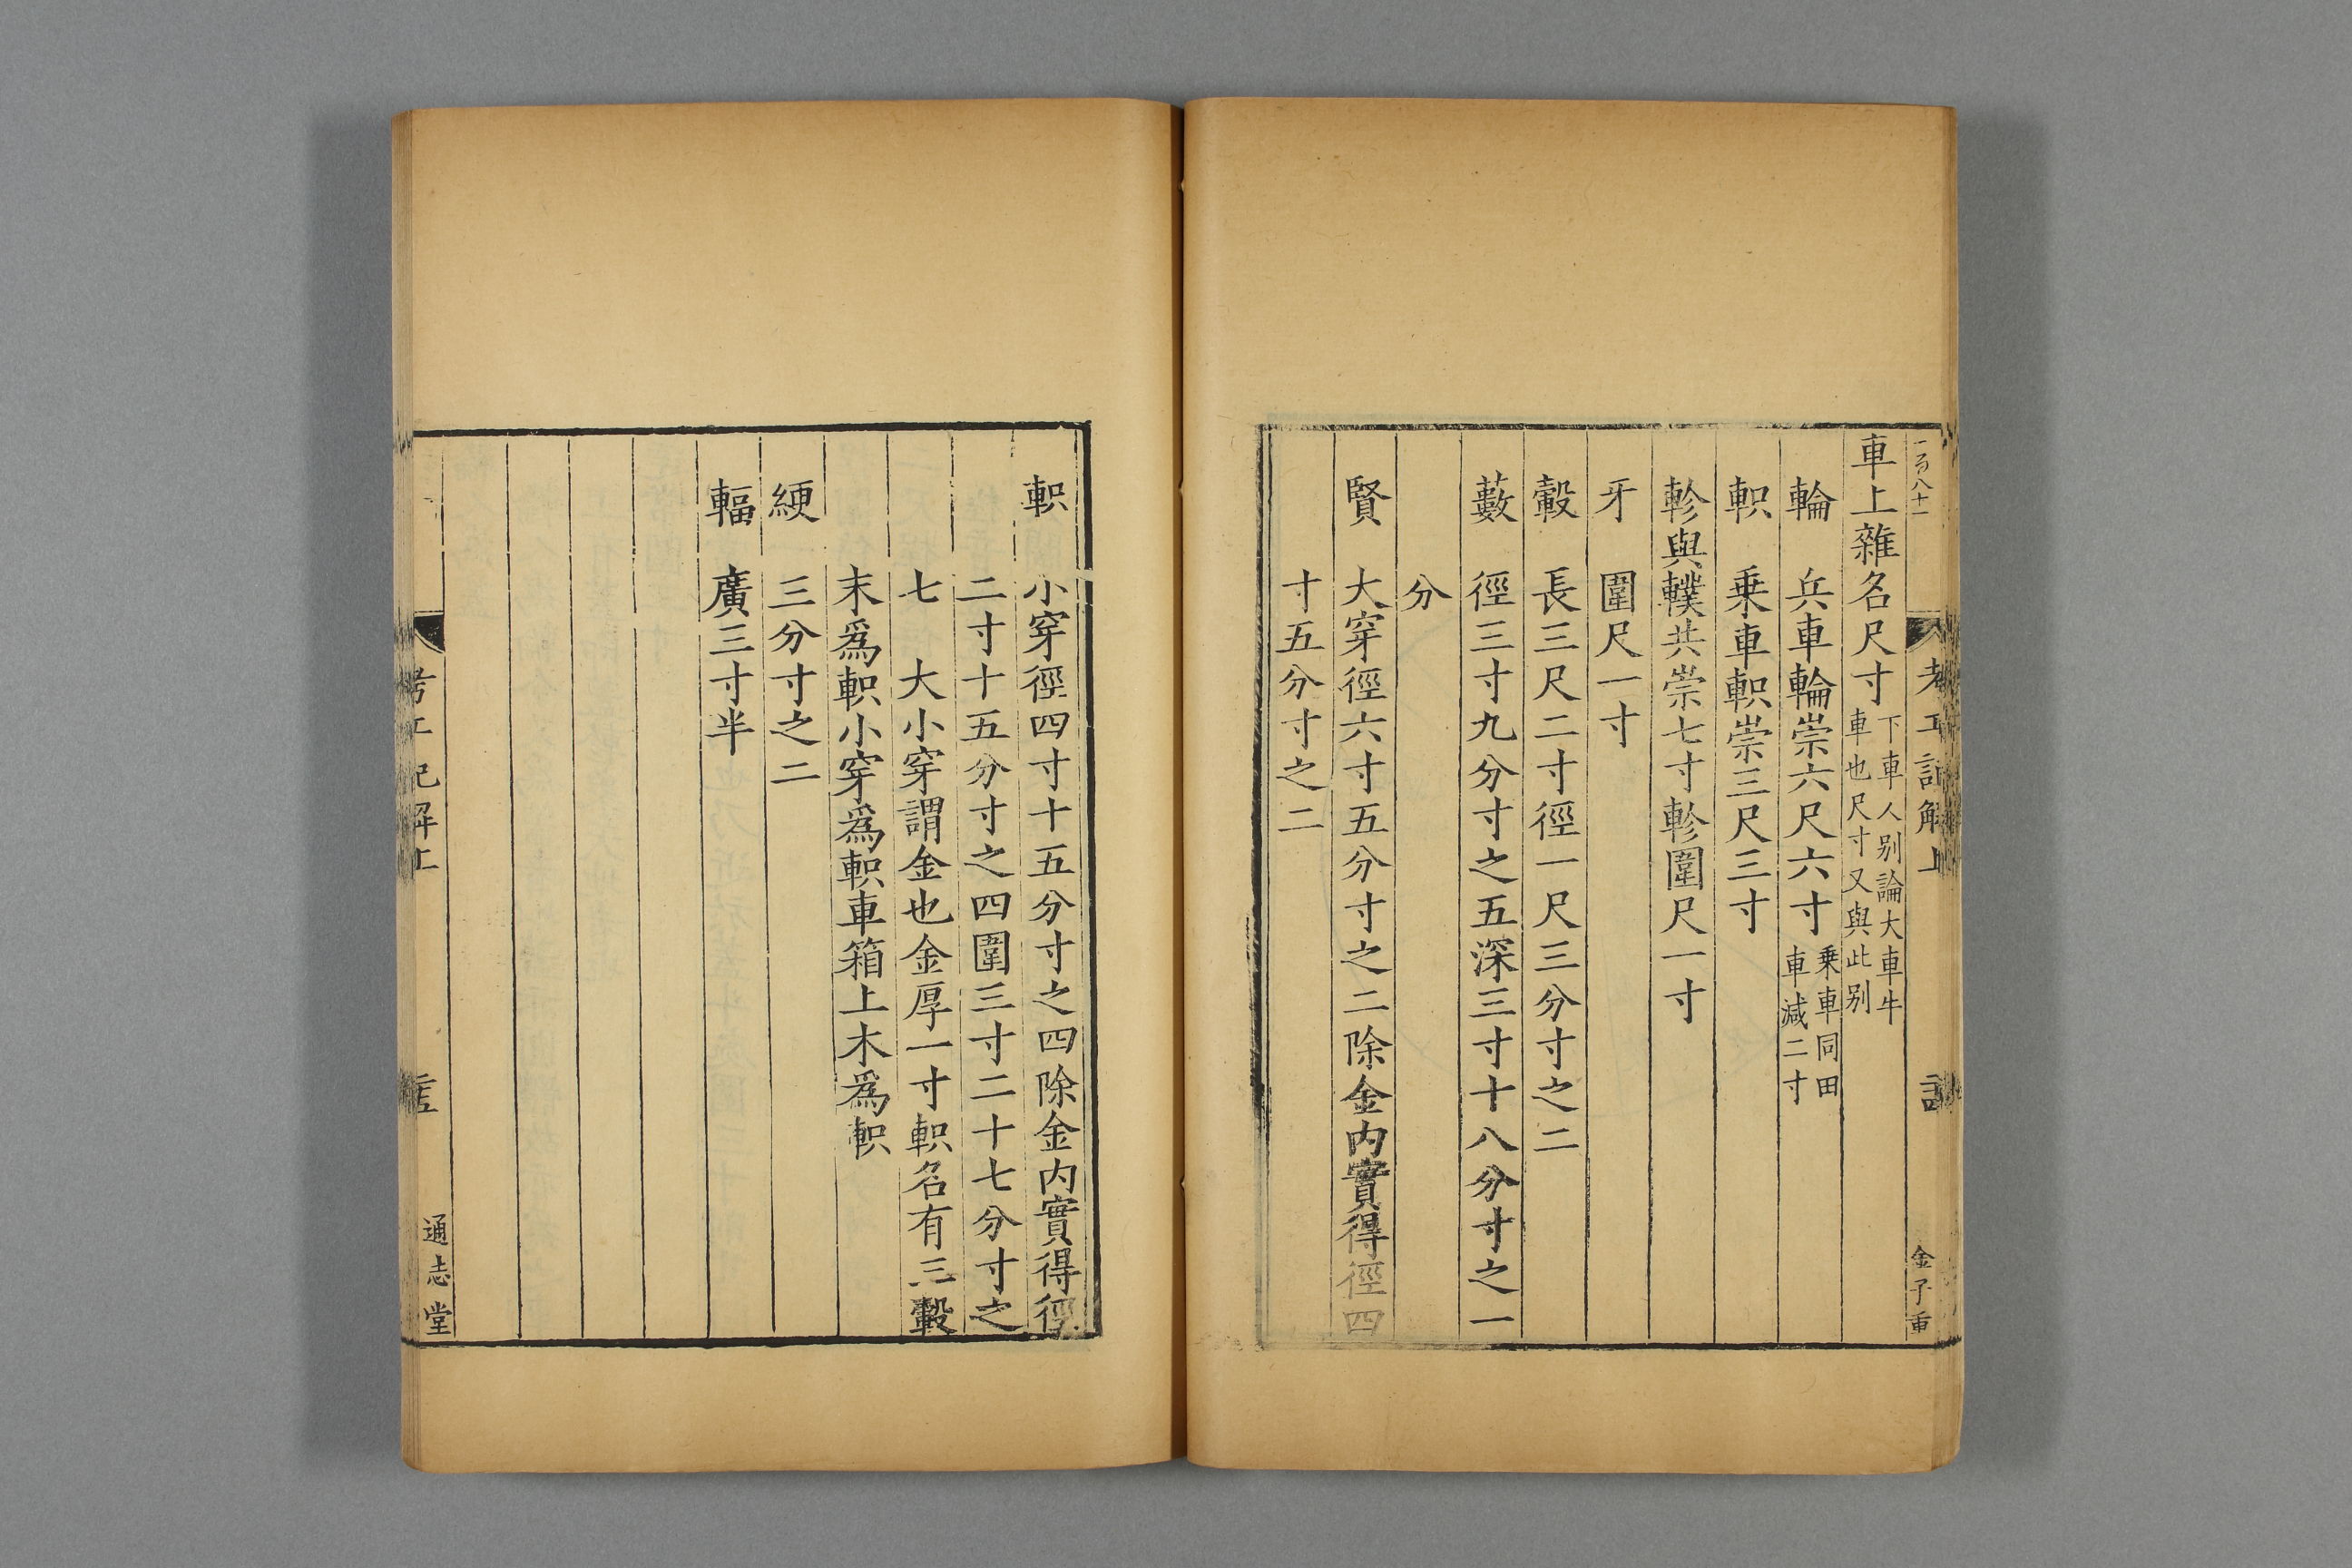 一百八十一
車上雜名尺寸下車人别論大車牛
車也尺寸又與此别
輪 兵車輪崇六尺六寸乗車同田
車減二寸
軹 乗車軹崇三尺三寸
軫與轐共崇七寸軫圍尺一寸
牙 圍尺一寸
轂 長三尺二寸徑一尺三分寸之二
藪 徑三寸九分寸之五深三寸十八分寸之一
分
賢 大穿徑六寸五分寸之二除金内實得徑四
寸五分寸之二
金子重
軹 小穿徑四寸十五分寸之四除金内實得徑
二寸十五分寸之四圍三寸二十七分寸之
七 大小穿謂金也金厚一寸軹名有三轂
末爲軹小穿爲軹車箱上木爲軹
綆 三分寸之二
輻 廣三寸半
考工記解上
通志堂